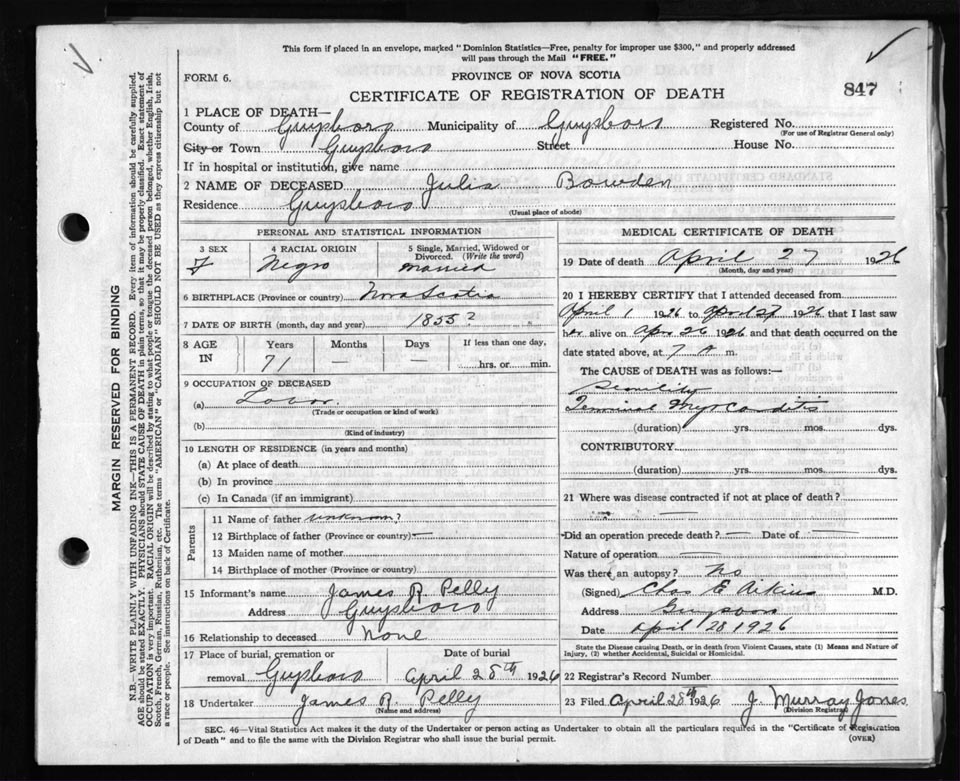 This form if placed in an envelope, marked "Dominion Statistics—Free, penalty for improper use $300," and properly addressed
will pass through the Mail "FREE."
FORM 6.
PROVINCE OF NOVA SCOTIA
CERTIFICATE OF REGISTRATION OF DEATH
847
1 PLACE OF DEATH—
County of Guysboro Municipality of Guysboro Registered No.
(For use of Registrar General only)
City or Town Guysboro Street House No.
If in hospital or institution, give name
2 NAME OF DECEASED Julia Bowden
Residence Guysboro
(Usual place of abode)
PERSONAL AND STATISTICAL INFORMATION
3 SEX F
4 RACIAL ORIGIN Negro
5 Single, Married, Widowed or Divorced. (Write the word) married
6 BIRTHPLACE (Province or country) Nova Scotia
7 DATE OF BIRTH (month, day and year) 1855?
8 AGE IN Years Months Days If less than one day,
71 — — hrs. or min.
9 OCCUPATION OF DECEASED
(a) Labor.
(Trade or occupation or kind of work)
(b)
(Kind of industry)
10 LENGTH OF RESIDENCE (in years and months)
(a) At place of death
(b) In province
(c) In Canada (if an immigrant)
Parents
11 Name of father unknown?
12 Birthplace of father (Province or country) —
13 Maiden name of mother
14 Birthplace of mother (Province or country)
15 Informant's name James R. Pelly
Address Guysboro
16 Relationship to deceased None
17 Place of burial, cremation or removal Guysboro
Date of burial April 28th 1926
18 Undertaker James R. Pelly
(Name and address)
MEDICAL CERTIFICATE OF DEATH
19 Date of death April 27 1926
(Month, day and year)
20 I HEREBY CERTIFY that I attended deceased from
April 1 1926 to April 27 1926 that I last saw
her alive on Apr 26 1926 and that death occurred on
date stated above, at 7 A m.
The CAUSE of DEATH was as follows:—
Terminal Myocarditis
(duration) yrs. mos. dys.
CONTRIBUTORY
(duration) yrs. mos. dys.
21 Where was disease contracted if not at place of death?
—
Did an operation precede death? — Date of —
Nature of operation —
Was there an autopsy? No
(Signed) Chas E Aikins M.D.
Address Guysboro
Date April 28 1926
State the Disease causing Death, or in death from Violent Causes, state (1) Means and Nature of
Injury, (2) whether Accidental, Suicidal or Homicidal.
22 Registrar's Record Number
23 Filed April 28th 1926 J. Murray Jones
(Division Registrar)
SEC. 46—Vital Statistics Act makes it the duty of the Undertaker or person acting as Undertaker to obtain all the particulars required in the "Certificate of Registration
of Death" and to file the same with the Division Registrar who shall issue the burial permit.
(OVER)
MARGIN RESERVED FOR BINDING
N.B.—WRITE PLAINLY, WITH UNFADING INK—THIS IS A PERMANENT RECORD. Every item of information should be carefully supplied.
AGE should be stated EXACTLY. PHYSICIANS should STATE CAUSE OF DEATH in plain terms, so that it may be properly classified. Exact statement of
OCCUPATION is very important. RACIAL ORIGIN will be described by stating to what people or tongue the deceased person belonged, whether English, Irish,
Scotch, French, German, Russian, Ruthenian, etc. The terms "AMERICAN" or "CANADIAN" SHOULD NOT BE USED as they express citizenship but not
a race or people. See instructions on back of Certificate.